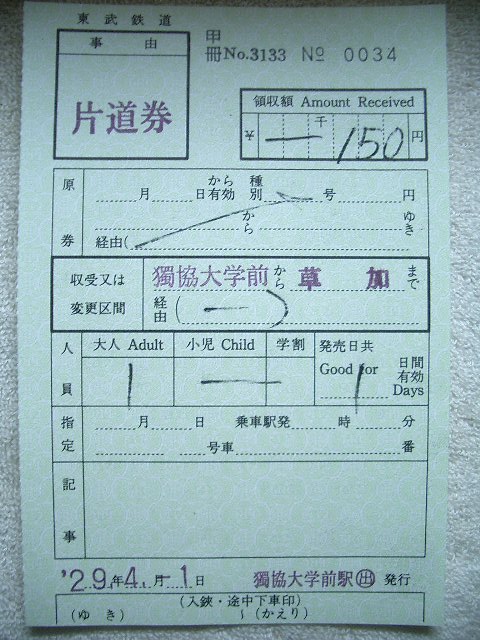 東武鉄道
事由
片道券
甲
冊No.3133 № 0034
領収額 Amount Received
¥ 千 150 円
原券
月 日から有効 種別 号 円
から ゆき
経由(
収受又は
変更区間
獨協大学前から草加まで
経由( ー )
人員
大人 Adult 小児 Child 学割 発売日共
1 ー Good for 1 日間有効 Days
指定
月 日 乗車駅発 時 分
号車 番
記事
'29.年4.月-1日 獨協大学前駅 出 発行
(入鋏・途中下車印)
(ゆき) ~ (かえり)